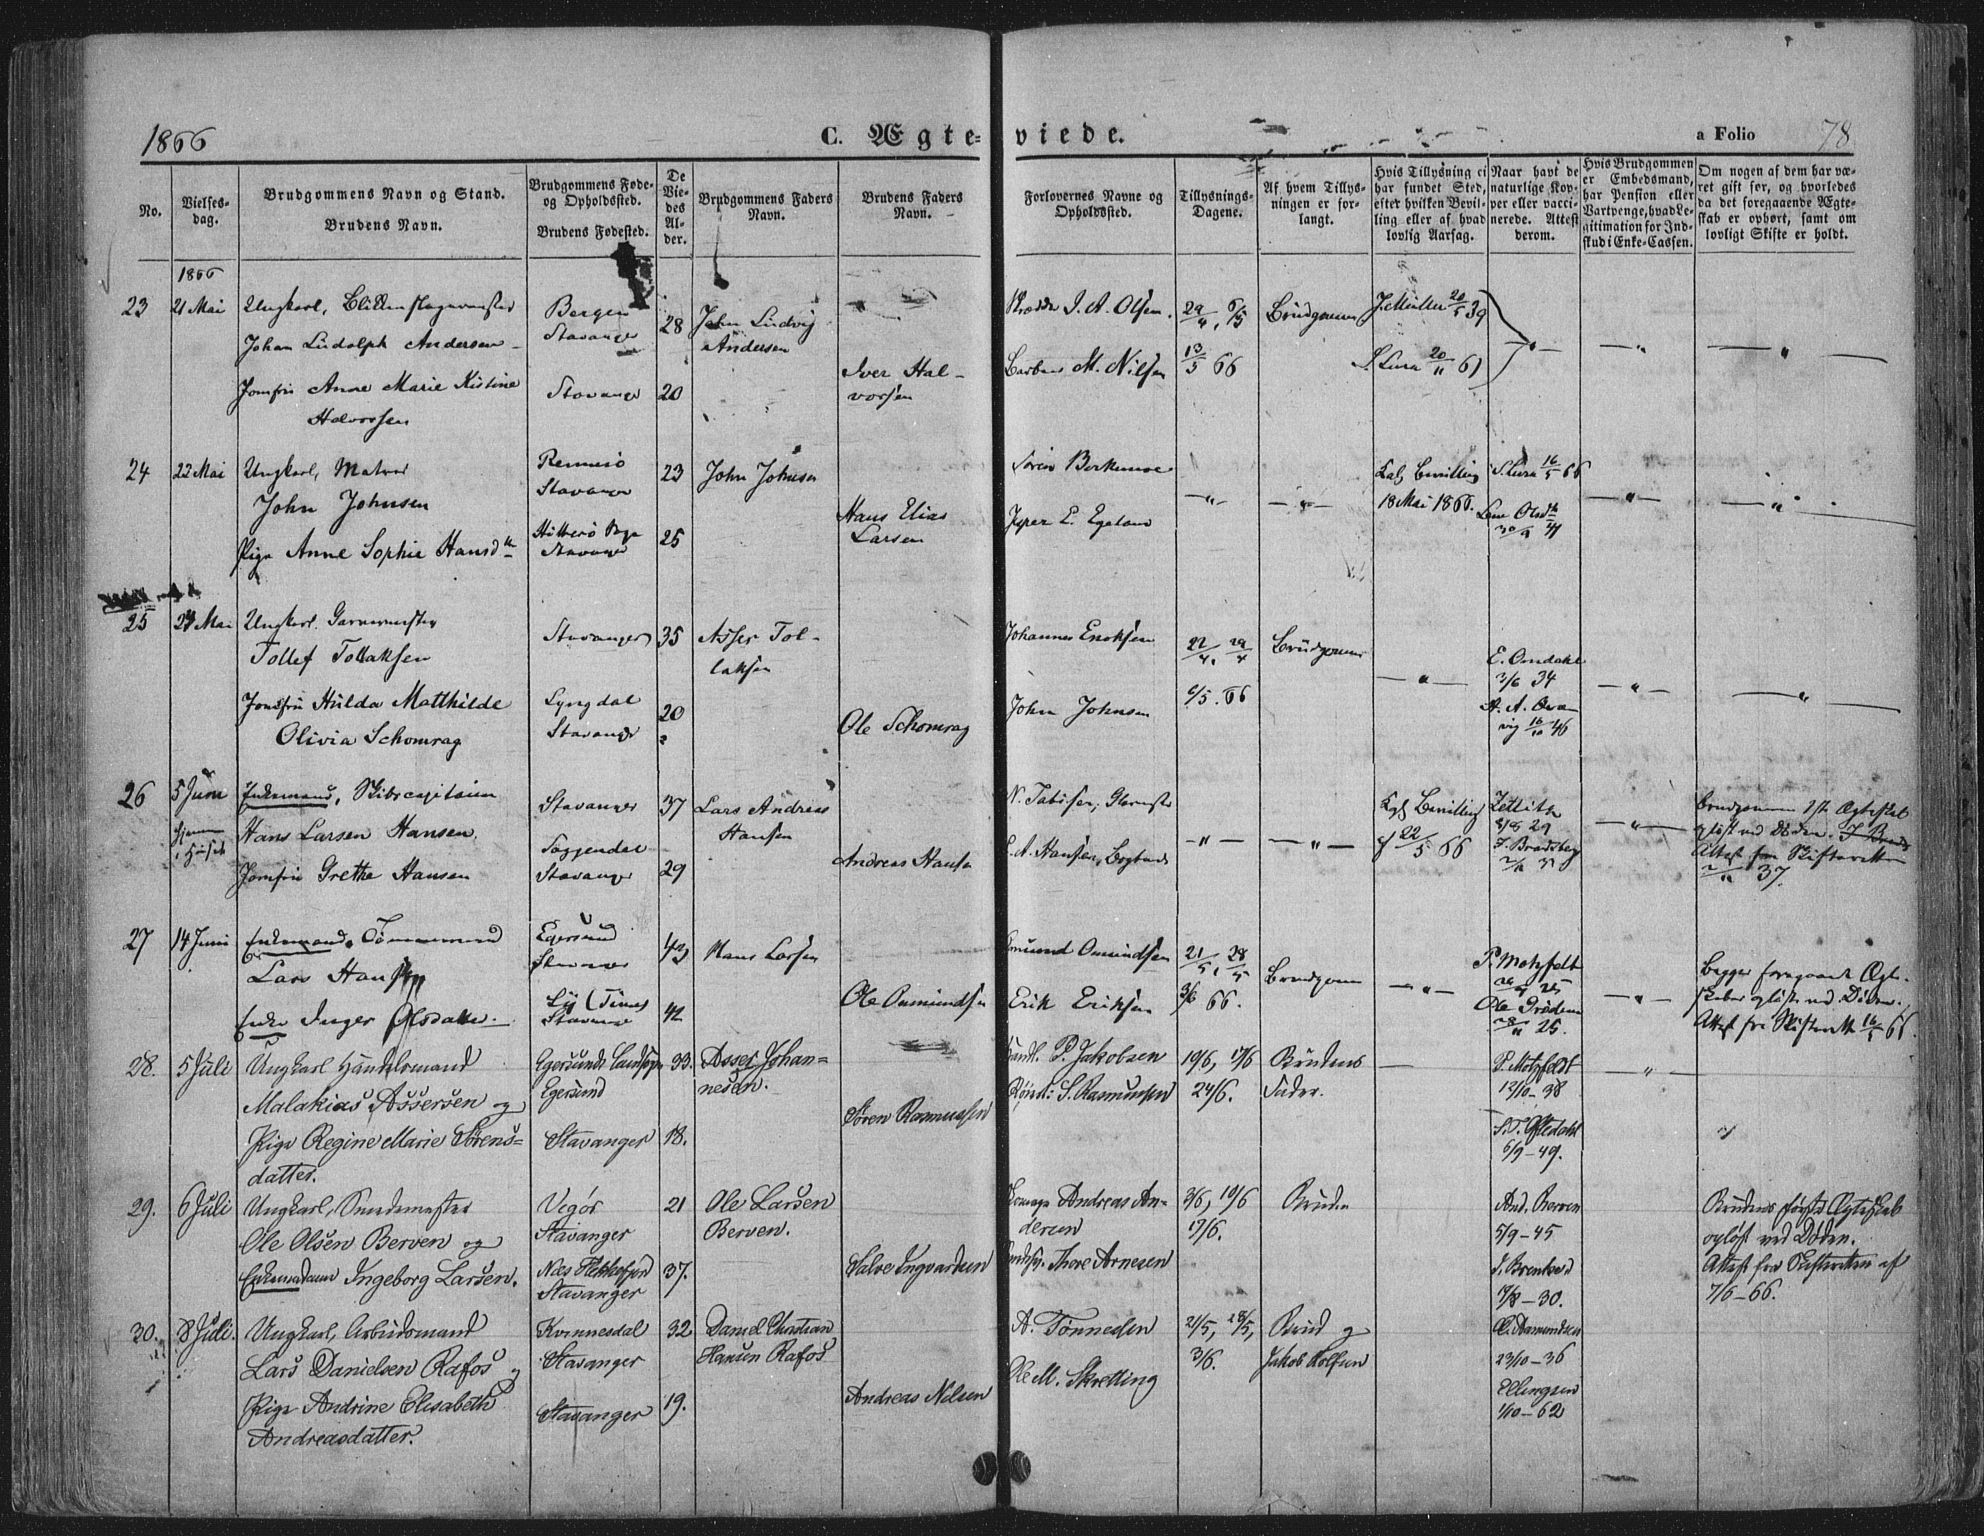 1866
C. Ægte-
viede.
a Folio 78
No.
Vielses-
dag.
Brudgommens Navn og Stand.
Brudens Navn.
Brudgommens Føde-
og Opholdssted.
Brudens Fødested.
De
Vie-
des
Al-
der.
Brudgommens Faders
Navn.
Brudens Faders
Navn.
Forlovernes Navne og
Opholdssted.
Tillysnings-
Dagene.
Af hvem Tillys-
ningen er for-
langt.
Hvis Tillysning ei
har fundet Sted,
efter hvilken Bevil-
ling eller af hvad
lovlig Aarsag.
Naar havt de
naturlige Kop-
per eller vacci-
nerede. Attest
derom.
Hvis Brudgommen
er Embedsmand,
har Pension eller
Vartpenge, hvad Le-
gitimation for Ind-
skud i Enke-Cassen.
Om nogen af dem har væ-
ret gift før, og hvorledes
da det foregaaende Ægte-
skab er ophørt, samt om
lovligt Skifte er holdt.
1866
23
21 Mai
Ungkarl,
Johan Ludolph Andersen
Jomfru Anne Marie Kistine
Halvorsen
Bergen
Stavanger
Stavanger
28
20
John Ludvig
Andersen
Iver Hal-
vorsen
I. A. Olsen.
M. Nilsen
29/4, 6/5
13/5 66
Brudgommen
J. Müller 20/5 39
S. Lura 20/11 61
24
22 Mai
Ungkarl, Matros
John Johnsen
Pige Anne Sophie Hansd
Rennesø
Stavanger
Hitterø
Stavanger
23
25
John Johnsen
Hans Elias
Larsen
Jesper E. Egeland
Kgl Bevilling
18 Mai 1866.
S. Lura 16/5 66
25
24 Mai
Ungkarl. Garvermester
Tollef Tollaksen
Jomfru Hulda Matthilde
Olivia Schomrag
Stavanger
Lyngdal
Stavanger
35
20
Asser Tol-
laksen
Ole Schomrag
Johannes Enoksen
John Johnsen
22/4, 29/4
6/5. 66
Brudgommen
E. Omdahl
3/6 34
16/10 46
26
5 Juni
Hjemme
i Huset
Enkemand, Skibscapitain
Hans Larsen Hansen.
Jomfru Grethe Hansen
Stavanger
Soggendal
Stavanger
37
29
Lars Andreas
Hansen
Andreas Hansen
Kgl Bevilling
af 22/5 66
Zetlitz
29
Brudgommens 1ste Ægteskab
opløst ved Døden.
Attest fra Skifteretten
37.
27
14 Juni
Enkemand. Tømmermand
Lars Hansen
Enke Inger Olsdatter.
Egersund
Stavanger
Stavanger
43
42
Hans Larsen
Ole Osmundsen
Osmund Osmundsen
Erik Eriksen
21/5, 28/5
3/6 66.
Brudgommen
P. Motzfeldt
25
28/11 25.
Begges foregaaende Ægte-
skaber opløst ved Døden.
Attest fra Skifterett 16/5 66.
28.
5 Juli
Ungkarl Handelsmand
Malakias Assersen og
Pige Regine Marie Sørens-
datter.
Egersunds Landsogn
Egersund
Stavanger
33.
18.
Asser Johan-
nesen.
Søren Rasmussen
Handl. P. Jakobsen
S. Rasmussen
10/6, 17/6
24/6.
Brudens
Fader.
P. Motzfeldt
12/10-38
Oftedahl
6/9-49.
29.
6 Juli
Ungkarl, Smedemester
Ole Olsen Berven og
Enkemadam Ingeborg Larsen.
Vigør
Stavanger
Næs Flekkefjord
Stavanger
21
37.
Ole Larsen
Berven.
Salve Ingvardsen
Andreas An-
dersen
Thore Arnesen
3/6, 10/6
17/6.
Bruden
And. Berven
5/9-45
17/8-30.
Brudens første Ægteskab
opløst ved Døden.
Attest fra Skifteretten af
7/6-66.
30.
8 Juli.
Ungkarl, Arbeidsmand
Lars Danielsen Rafos og
Pige Andrine Elisabeth
Andreasdatter.
Kvinnesdal
Stavanger
Stavanger
32
19.
Daniel Christian
Hansen Rafos
Andreas Nilsen
A. Tønnesen
Ole M. Skretting
21/5, 28/5,
3/6.
Brud og
Jakob
O. Asmundsen
23/10-36
Ellingsen
1/10-62